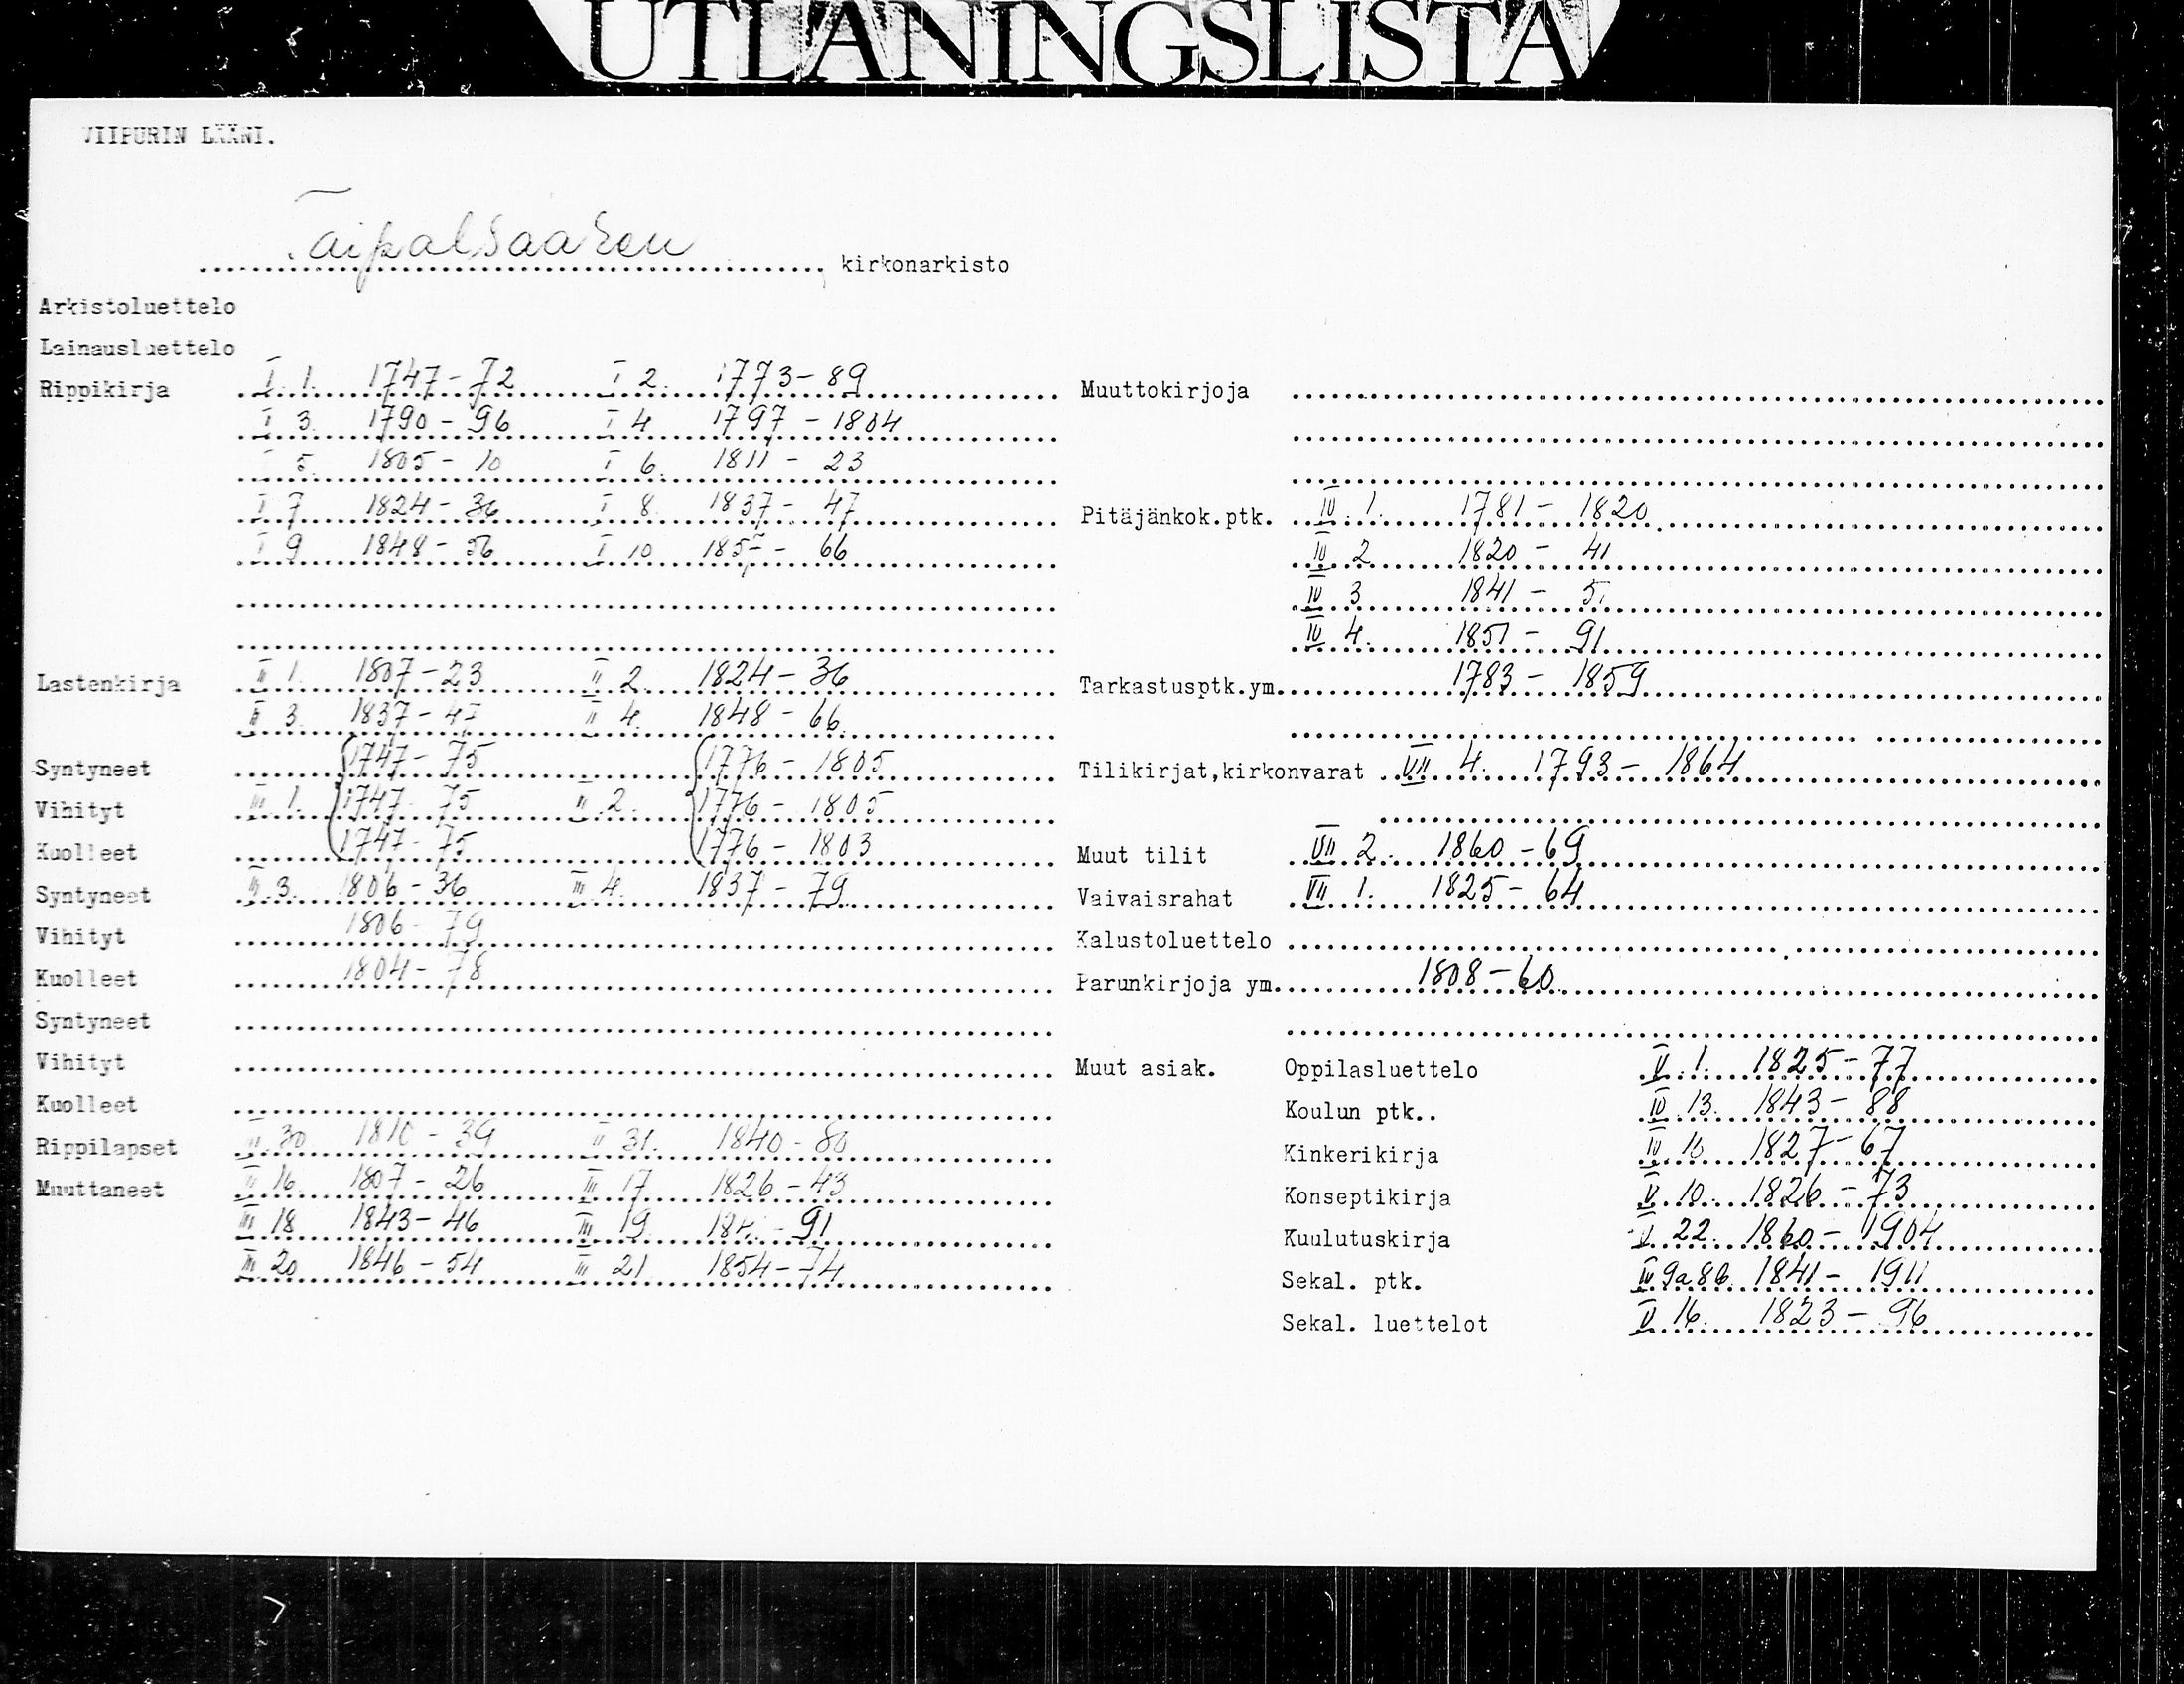 UTLÅNINGSLISTA
VIIPURIN LÄÄNI.
Taipalsaaren kirkonarkisto
Arkistoluettelo
Lainausluettelo
Rippikirja I 1. 1747-72 I 2. 1773-89
I 3. 1790-96 I 4 1797-1804
I 5. 1805-10 I 6. 1811-23
I 7 1824-36 I 8. 1837-47
I 9 1848-56 I 10 185 - 66
Lastenkirja II 1. 1807-23 II 2. 1824-36
II 3. 1837-47 II 4. 1848-66
Syntyneet 1747-75 1776-1805
Vihityt III 1. 1747-75 2. 1776-1805
Kuolleet 1747-75 1776-1803
Syntyneet III 3. 1806-36 III 4. 1837-79
Vihityt 1806-79
Kuolleet 1804-78
Syntyneet
Vihityt
Kuolleet
Rippilapset II 30 1810-39 II 31. 1840-80
Muuttaneet 16. 1807-26 III 17 1826-43
III 18 1843-46 III 19. -91
III 20 1846-54 III 21 1854-74
Muuttokirjoja
Pitäjänkok.ptk. IV 1. 1781-1820
IV 2 1820-41
IV 3 1841-51
IV 4. 1851-91
Tarkastusptk.ym. 1783-1859
Tilikirjat,kirkonvarat VII 4. 1793-1864
Muut tilit VII 2. 1860-69
Vaivaisrahat VII 1. 1825-64
Kalustoluettelo
Parunkirjoja ym. 1808-60
Muut asiak. Oppilasluettelo V 1. 1825-77
Koulun ptk.. IV 13. 1843-88
Kinkerikirja IV 1827-67
Konseptikirja V 10. 1826-73
Kuulutuskirja 22. 1860-1904
Sekal. ptk. IV 9a8b. 1841-1911
Sekal. luettelot V 16. 1823-96